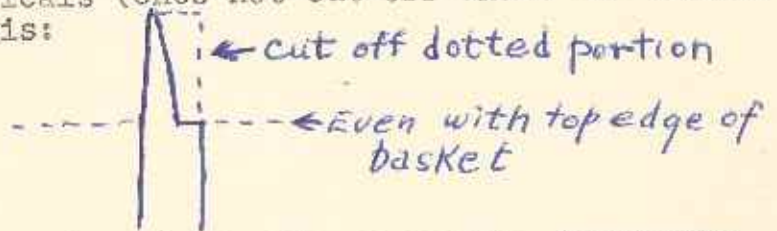 is:
cut off dotted portion
Even with top edge of
basket